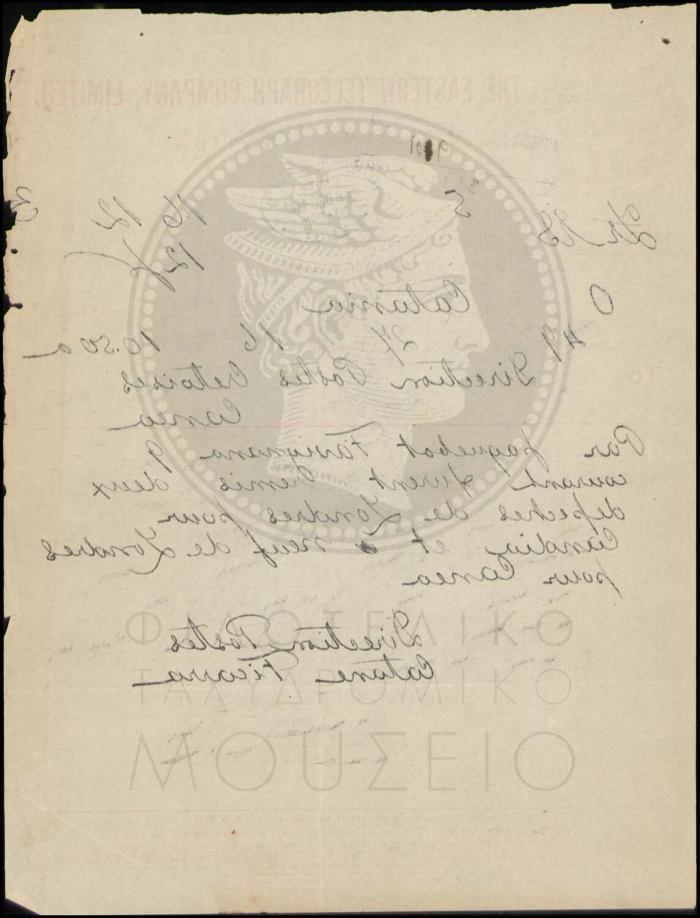 THE EASTERN TELEGRAPH COMPANY, LIMITED.
5 12
16
12/
O Catania
49 27 16 10.50 a
Direction Postes Cretoises
Canea
Par paquebot Favignana 9
courant furent remis deux
depeches de Londres pour
Candia et neuf de Londres
pour Canea
Direction Postes
Catane Ficarra
ΦΙΛΟΤΕΛΙΚΟ
ΤΑΧΥΔΡΟΜΙΚΟ
ΜΟΥΣΕΙΟ